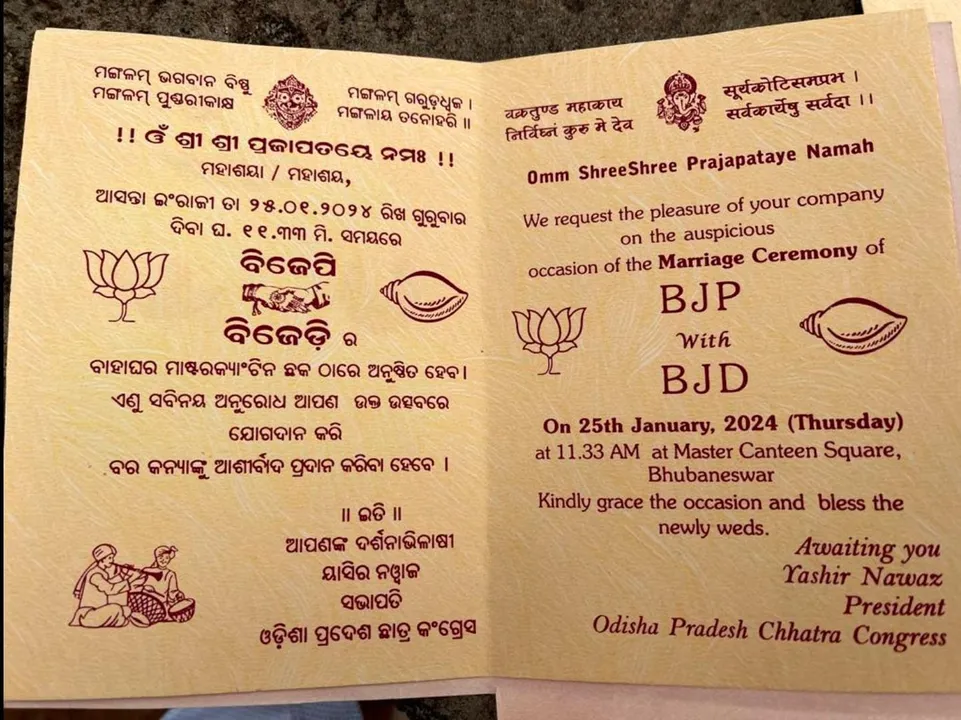 ମଙ୍ଗଳମ୍ ଭଗବାନ ବିଷ୍ଣୁ
ମଙ୍ଗଳମ୍ ପୁଣ୍ଡରୀକାକ୍ଷ
ମଙ୍ଗଳମ୍ ଗରୁଡ଼ଧ୍ୱଜ ।
ମଙ୍ଗଳାୟ ତନୋହରି ॥
!! ଓଁ ଶ୍ରୀ ଶ୍ରୀ ପ୍ରଜାପତୟେ ନମଃ !!
ମହାଶୟା / ମହାଶୟ,
ଆସନ୍ତା ଇଂରାଜୀ ତା ୨୫.୦୧.୨୦୨୪ ରିଖ ଗୁରୁବାର
ଦିବା ଘ. ୧୧.୩୩ ମି. ସମୟରେ
ବିଜେପି
ବିଜେଡ଼ି ର
ବାହାଘର ମାଷ୍ଟରକ୍ୟାଣ୍ଟିନ ଛକ ଠାରେ ଅନୁଷ୍ଠିତ ହେବ।
ଏଣୁ ସବିନୟ ଅନୁରୋଧ ଆପଣ ଉକ୍ତ ଉତ୍ସବରେ
ଯୋଗଦାନ କରି
ବର କନ୍ୟାଙ୍କୁ ଆଶୀର୍ବାଦ ପ୍ରଦାନ କରିବା ହେବେ ।
॥ ଇତି ॥
ଆପଣଙ୍କ ଦର୍ଶନାଭିଳାଷୀ
ୟାସିର ନୱାଜ
ସଭାପତି
ଓଡ଼ିଶା ପ୍ରଦେଶ ଛାତ୍ର କଂଗ୍ରେସ
वक्रतुण्ड महाकाय
निर्विघ्नं कुरु मे देव
सूर्यकोटिसमप्रभ ।
सर्वकार्येषु सर्वदा ।।
Omm ShreeShree Prajapataye Namah
We request the pleasure of your company
on the auspicious
occasion of the Marriage Ceremony of
BJP
With
BJD
On 25th January, 2024 (Thursday)
at 11.33 AM at Master Canteen Square,
Bhubaneswar
Kindly grace the occasion and bless the
newly weds.
Awaiting you
Yashir Nawaz
President
Odisha Pradesh Chhatra Congress